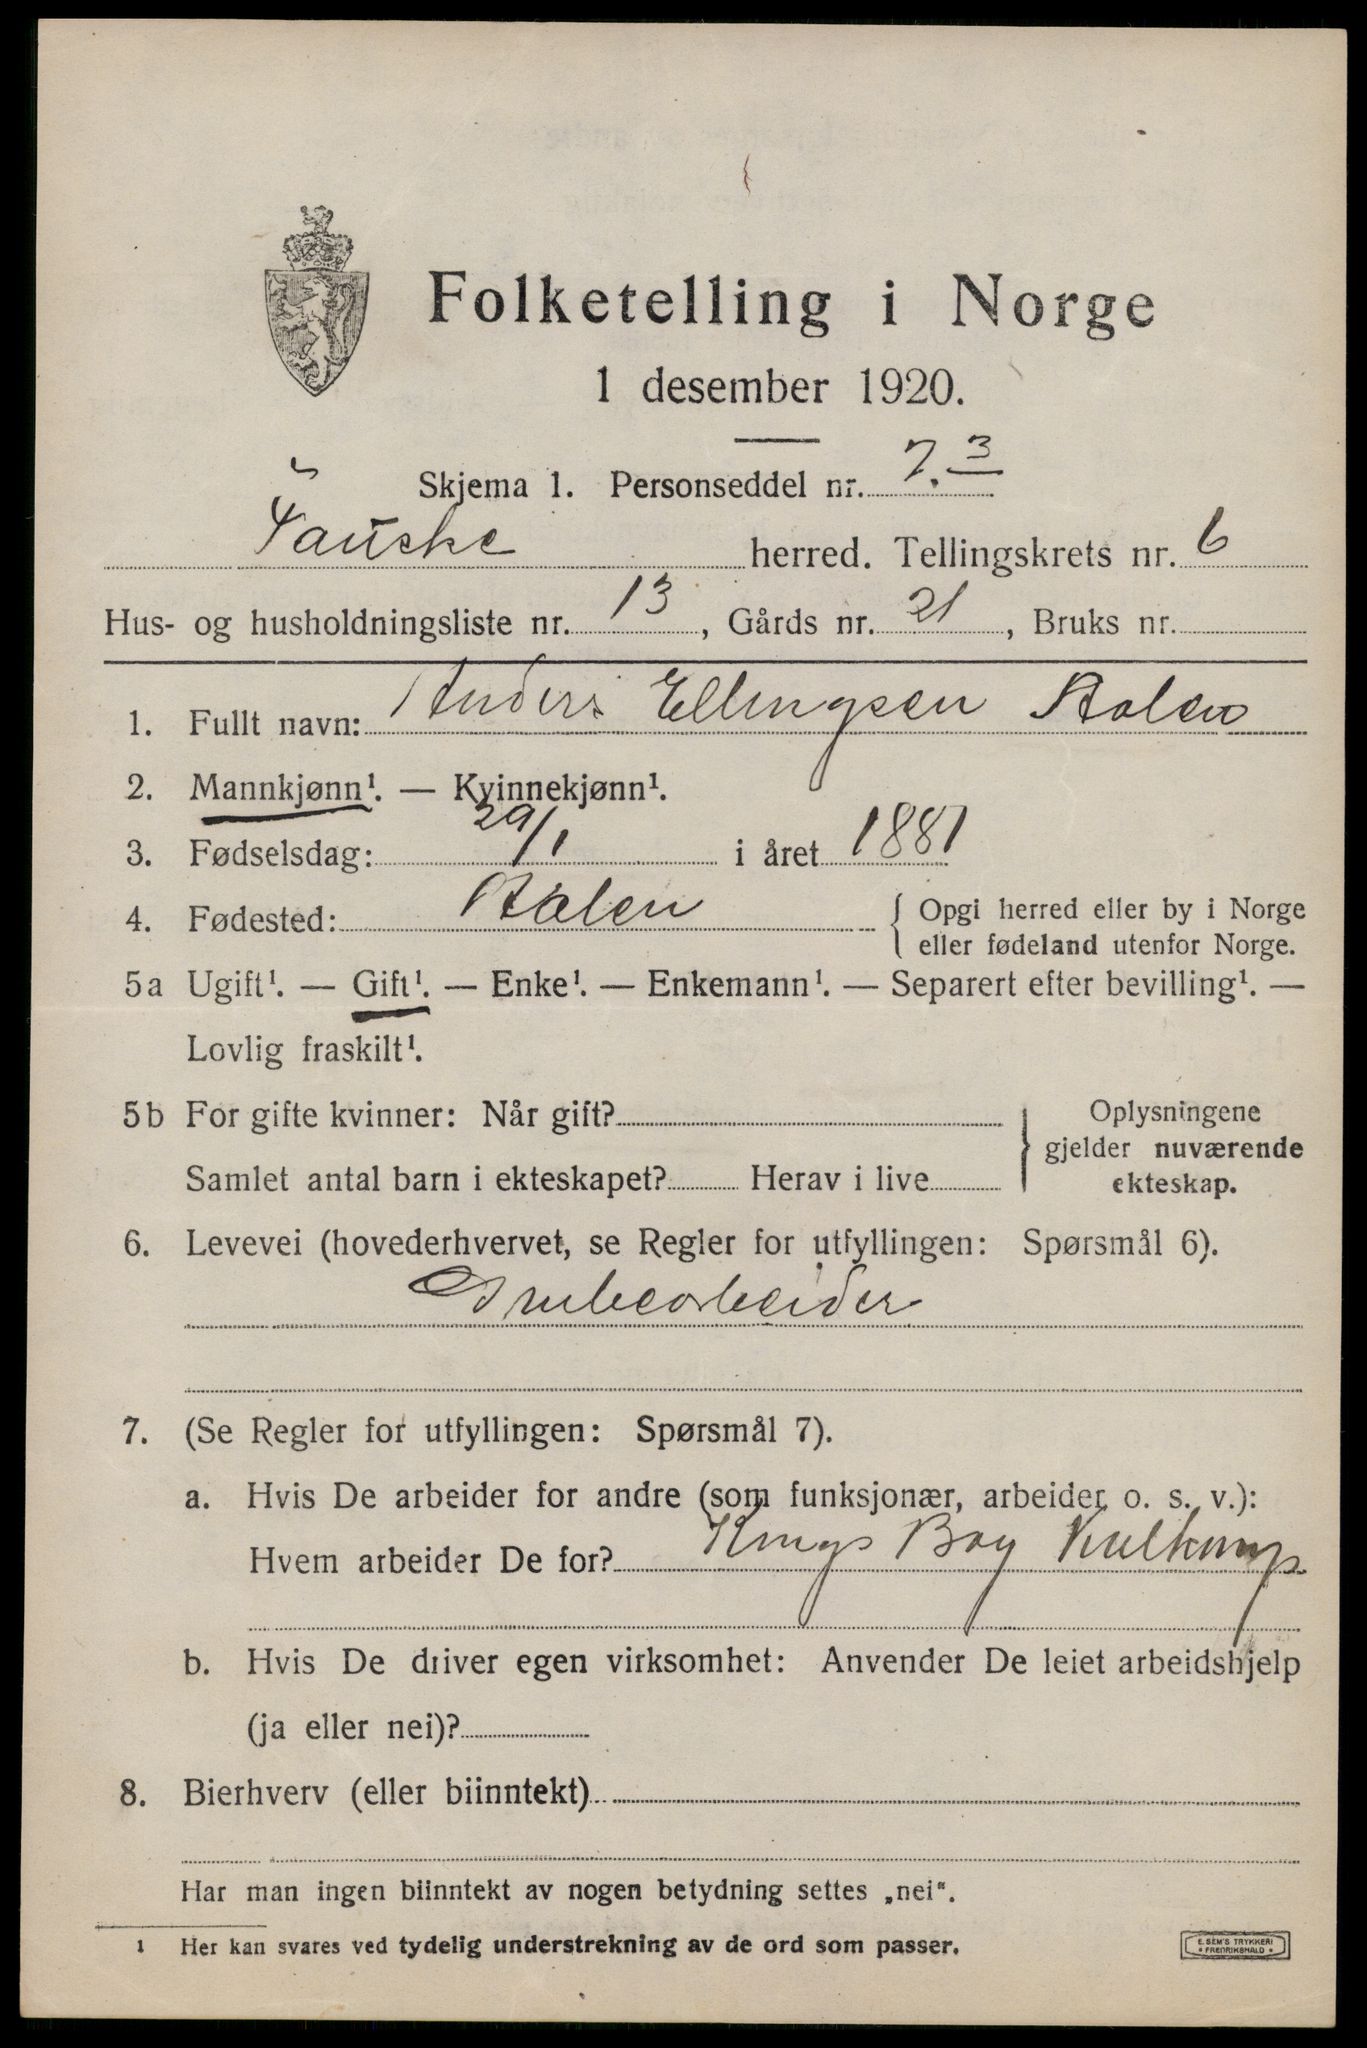 Folketelling i Norge
1 desember 1920.
Skjema 1. Personseddel nr. 7.3
Fauske herred. Tellingskrets nr. 6
Hus- og husholdningsliste nr. 13, Gårds nr. 21, Bruks nr.
1. Fullt navn: Anders Ellingsen Aalen
2. Mannkjønn¹. — Kvinnekjønn¹.
3. Fødselsdag: 29/1 i året 1881
4. Fødested: Aalen { Opgi herred eller by i Norge
eller fødeland utenfor Norge.
5a Ugift¹. — Gift¹. — Enke¹. — Enkemann¹. — Separert efter bevilling¹. —
Lovlig fraskilt¹.
5b For gifte kvinner: Når gift? } Oplysningene
gjelder nuværende
Samlet antal barn i ekteskapet? Herav i live ekteskap.
6. Levevei (hovederhvervet, se Regler for utfyllingen: Spørsmål 6).
Grubearbeider
7. (Se Regler for utfyllingen: Spørsmål 7).
a. Hvis De arbeider for andre (som funksjonær, arbeider o. s. v.):
Hvem arbeider De for? Kings Bay Kulkomp
b. Hvis De driver egen virksomhet: Anvender De leiet arbeidshjelp
(ja eller nei)?
8. Bierhverv (eller biinntekt)
Har man ingen biinntekt av nogen betydning settes „nei“.
1 Her kan svares ved tydelig understrekning av de ord som passer.
E. SEM'S TRYKKERI
• FREDRIKSHALD •